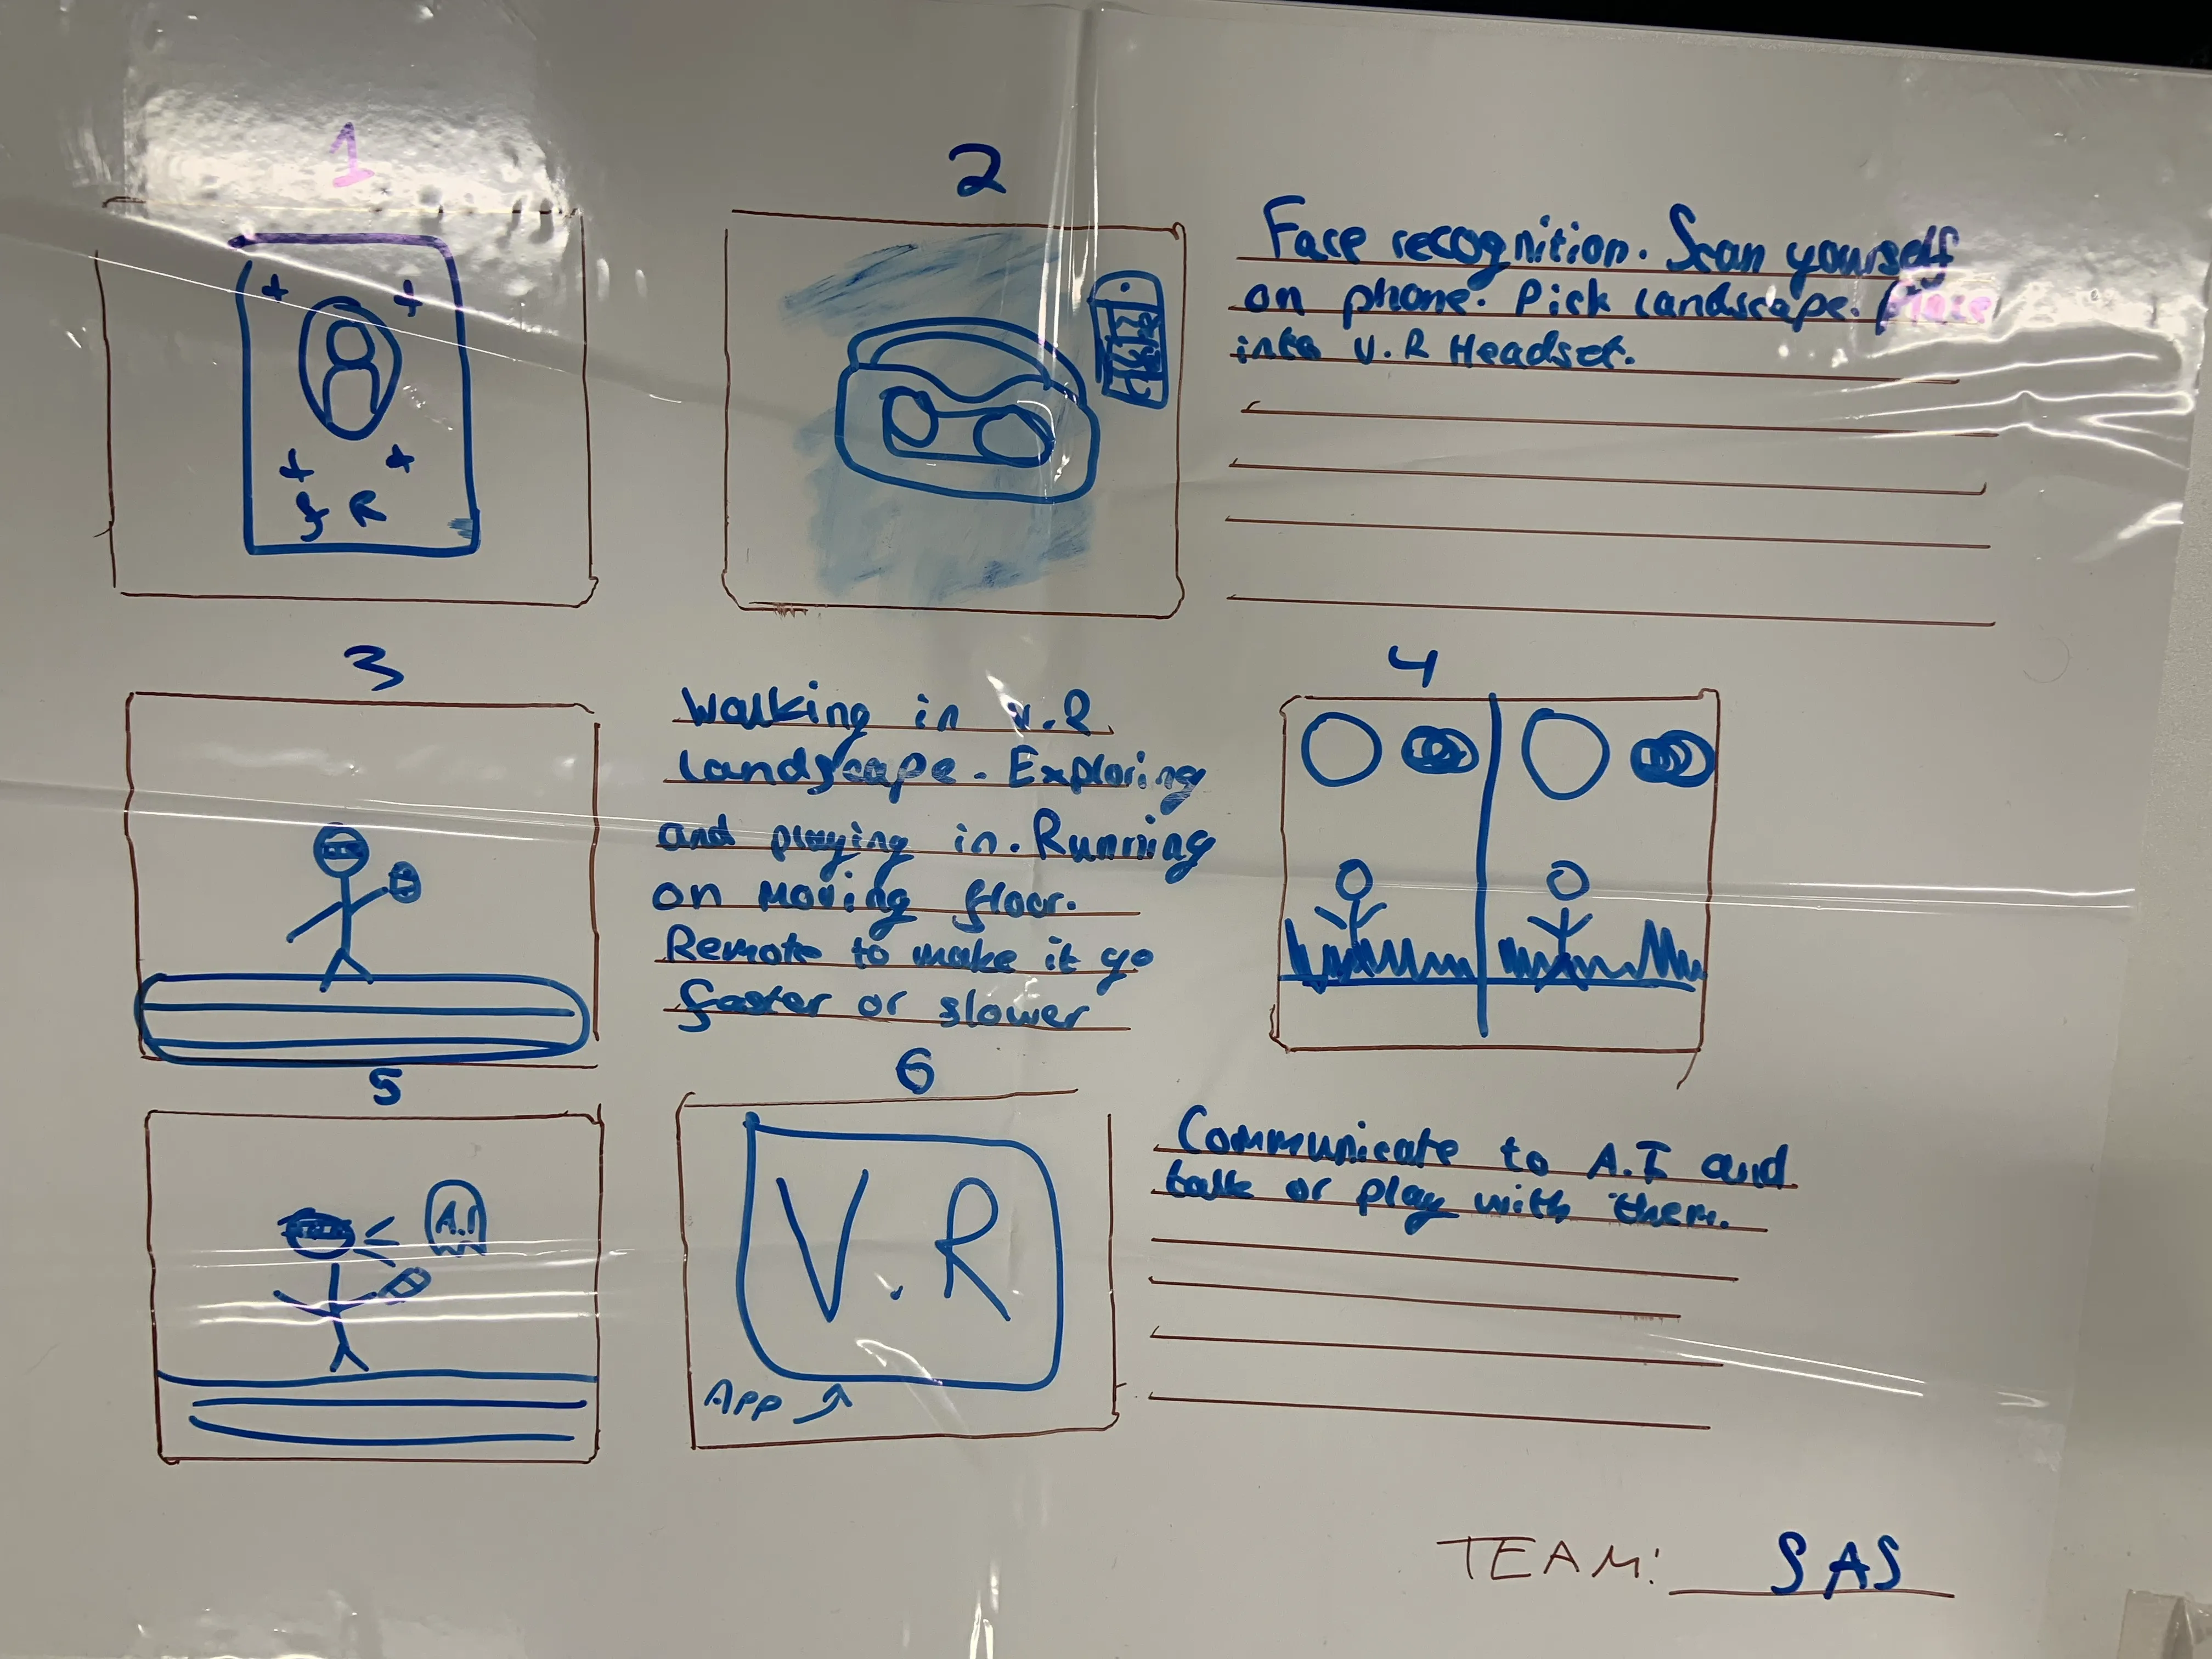 1
2
f R
Face recognition. Scan yourself
on phone. Pick landscape. Place
into V.R Headset.
3
4
Walking in V.R
landscape. Exploring
and playing in. Running
on moving floor.
Remote to make it go
faster or slower
5
6
A.I
V.R
APP
Communicate to A.I and
talk or play with them.
TEAM: SAS